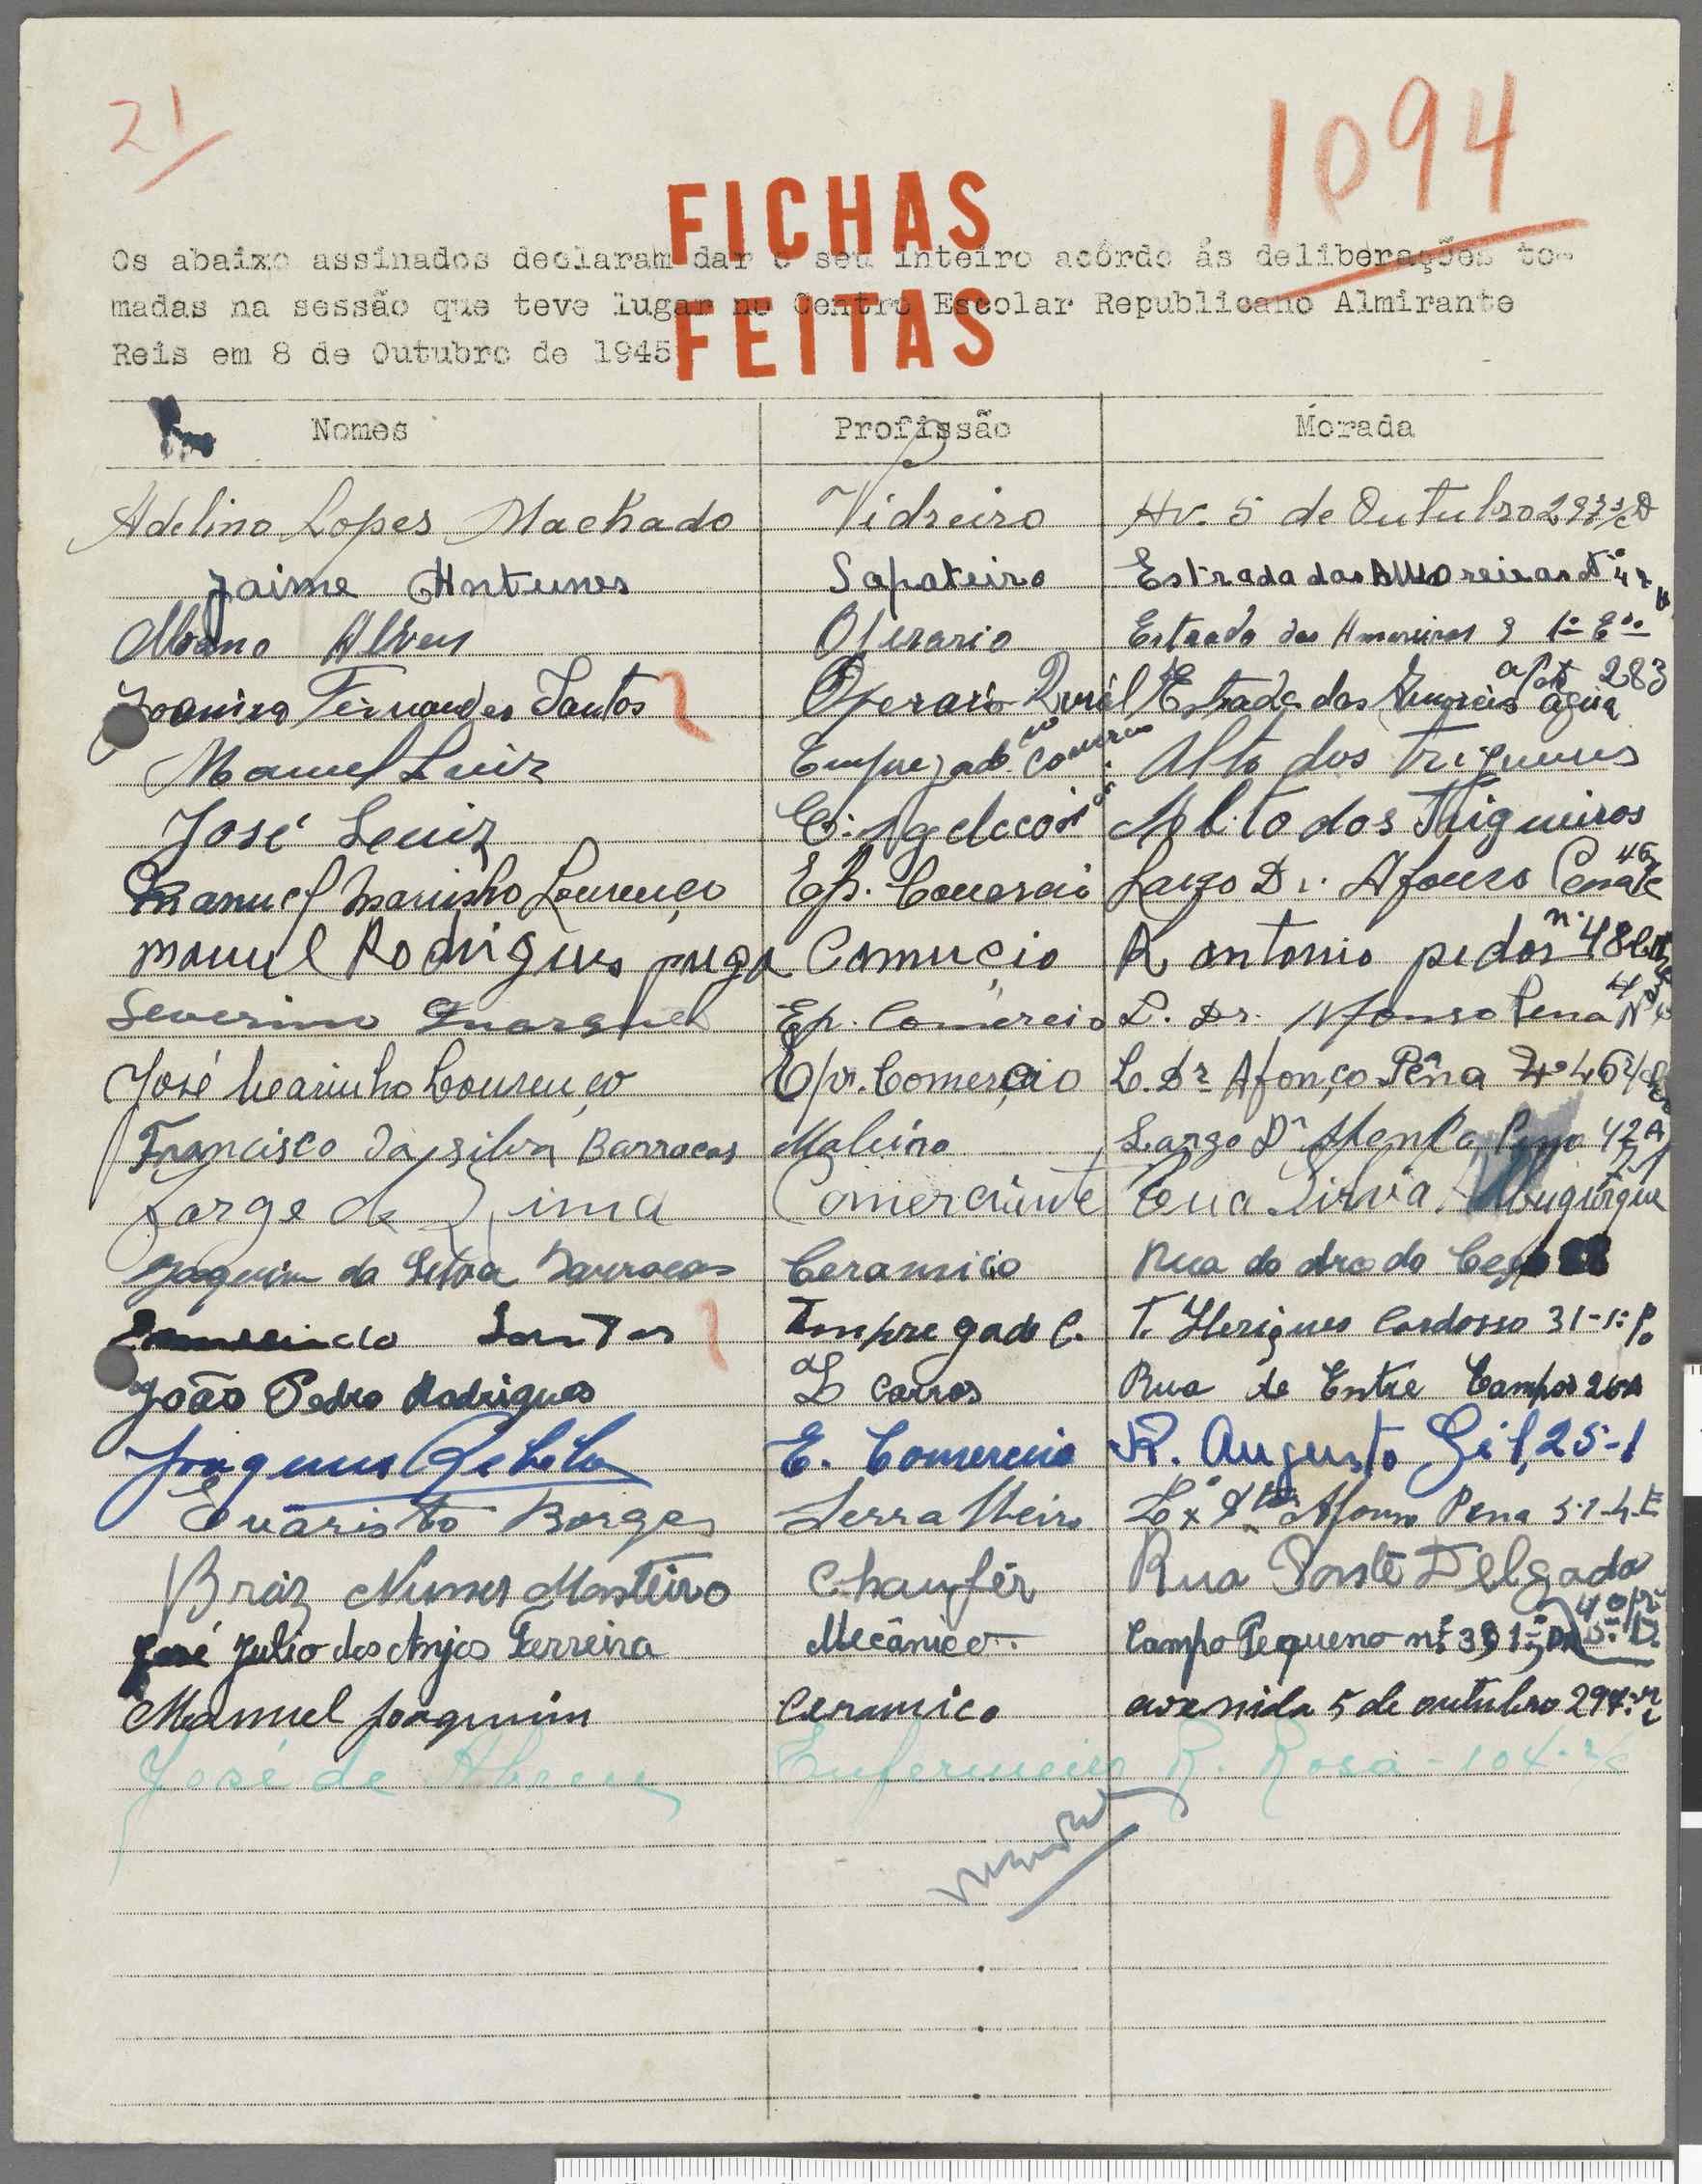 21
1094
FICHAS
Os abaixo assinados declaram dar o seu inteiro acôrdo ás deliberações to-
madas na sessão que teve lugar no Centro Escolar Republicano Almirante
FEITAS
Reis em 8 de Outubro de 1945
Nomes Profissão Morada
Adelino Lopes Machado Vidreiro Av. 5 de Outubro 293 r/c D
Jaime Antunes Sapateiro Estrada das Amoreiras Nº 47
Albano Alves Operario Estrada das Amoreiras 9 1º
Fernandes Santos Operario Rural Estrada das 283 agua
Manuel Luiz Empregado no Comercio Alto dos Trigueiros
José Luiz Alto dos Trigueiros
Manuel Marinho Lourenço Ep. Comercio Largo Dr. Afonso Pena 46
Manuel Rodrigues puga Comercio R antonio pedor nº 48
Severino Marques Ep. Comercio L. Dr. Afonso Pena
José Marinho Lourenço Epr. Comerçio L. Dr Afonço Pêna 46
Francisco da silva Barracas Largo Dr Pena 42 A
Jorge de Lima Comerciante Rua Silvia Albuquerque
Joaquim da Silva Barracas Ceramico Rua do Arco do Cego
Santos Empregado C. T. Heriques Cardosso 31-1º
João Pedro Rodrigues L Carros Rua de Entre Campos 26A
Joaquim Rebelo E. Comercio R. Augusto Gil, 25-1
Evaristo Borges Serralheiro Afonso Pena 51-4-E
Braz Nunes Monteiro Chaufér Rua Ponte Delgada
José Julio dos Anjos Ferreira Mecânico. Campo Pequeno nº 39 1º
Manuel Joaquim Ceramico avenida 5 de outubro 294 r/c
José de Abreu Enfermeiro R. Rosa - 104 - r/c